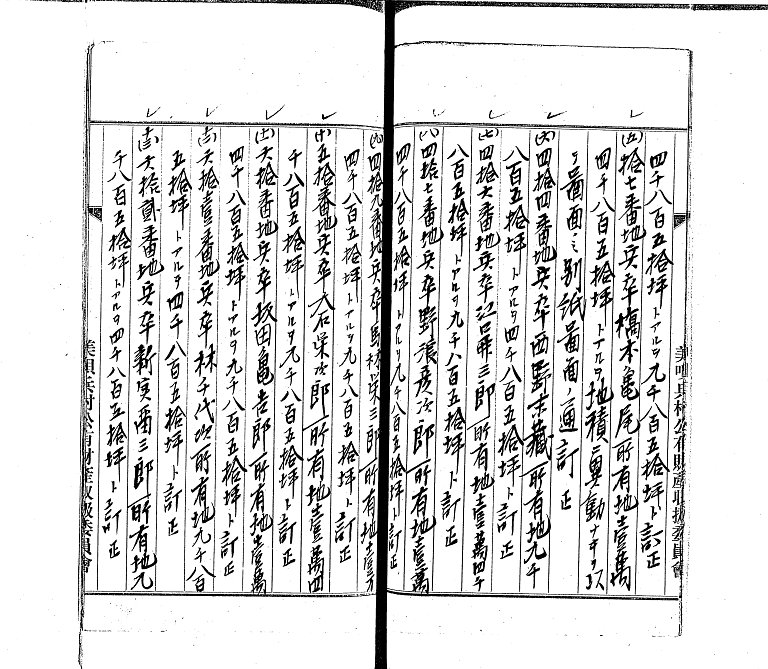 四千八百五拾坪トアルヲ九千八百五拾坪ト訂正
(五)拾七番地兵卒橋本亀尾ノ所有地壹萬
四千八百五拾坪トアルヲ地積ニ異動ナキヨリ
圖面ニ別紙圖面ノ通訂正
(六)四拾四番地兵卒西野末藏ノ所有地九千
八百五拾坪トアルヲ四千八百五拾坪ト訂正
(七)四拾六番地兵卒江口 三郎ノ所有地壹萬四千
八百五拾坪トアルヲ九千八百五拾坪ト訂正
(八)四拾七番地兵卒野浪彦次郎ノ所有地壹萬
四千八百五拾坪トアルヲ九千八百五拾坪ト訂正
美唄兵村公有財產取扱委員會
(九)四拾九番地兵卒 林榮三郎ノ所有地壹萬
四千八百五拾坪トアルヲ九千八百五拾坪ト訂正
(十)五拾番地兵卒大石榮次郎ノ所有地壹萬四
千八百五拾坪トアルヲ九千八百五拾坪ト訂正
(十一)六拾番地兵卒坂田亀吉郎ノ所有地壹萬
四千八百五拾坪トアルヲ九千八百五拾坪ト訂正
(十二)六拾壹番地兵卒林千代次ノ所有地九千八百
五拾坪トアルヲ四千八百五拾坪ト訂正
(十三)六拾貳番地兵卒新実 三郎ノ所有地九
千八百五拾坪トアルヲ四千八百五拾坪ト訂正
美唄兵村公有財產取扱委員會